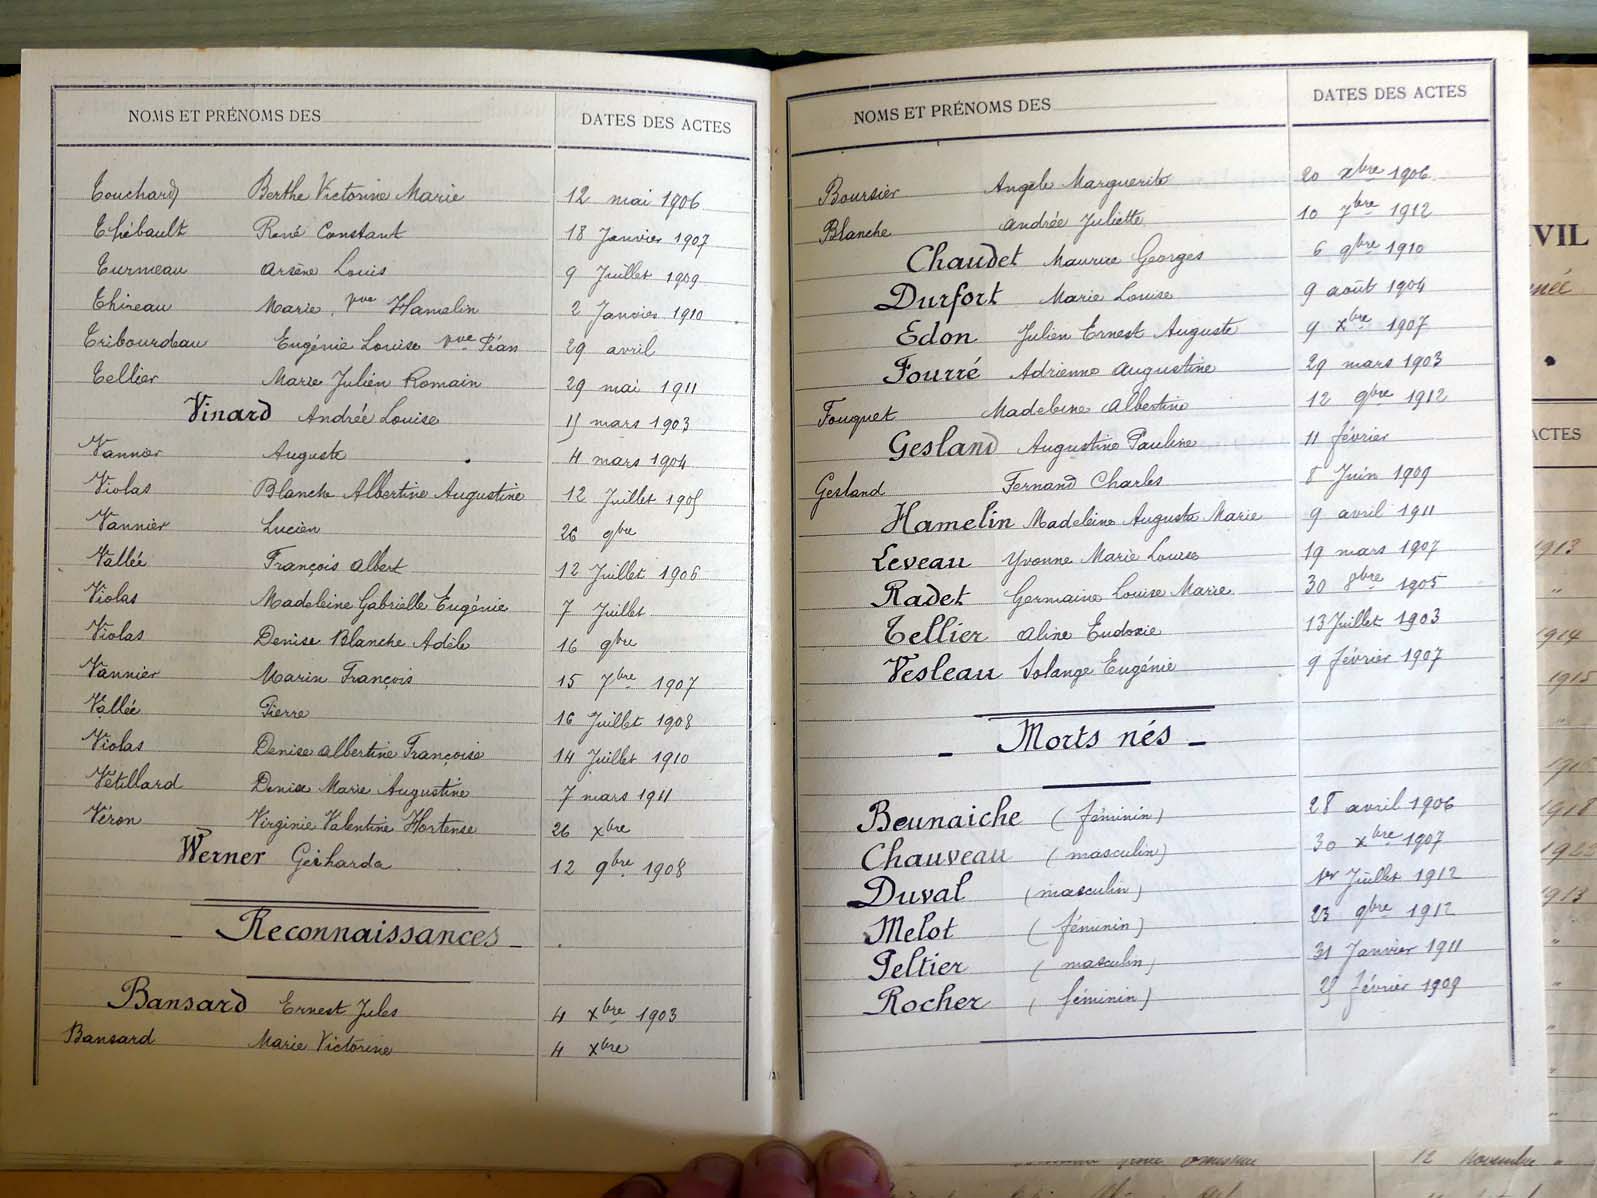 NOMS ET PRÉNOMS DES DATES DES ACTES
Touchard Berthe Victorine Marie 12 mai 1906
Thébault René Constant 18 Janvier 1907
Turmeau Arsène Louis 9 Juillet 1909
Thireau Marie, vve Hamelin 2 Janvier 1910
Tribourdeau Eugénie Louise vve Péan 29 avril
Tellier Marie Julien Romain 29 mai 1911
Vinard Andrée Louise 15 mars 1903
Vannier Auguste 4 mars 1904
Violas Blanche Albertine Augustine 12 Juillet 1905
Vannier Lucien 26 9bre
Vallée François Albert 12 Juillet 1906
Violas Madeleine Gabrielle Eugénie 7 Juillet
Violas Denise Blanche Adèle 16 9bre
Vannier Marin François 15 7bre 1907
Vallée Pierre 16 Juillet 1908
Violas Denise Albertine Françoise 14 Juillet 1910
Vétillard Denise Marie Augustine 7 mars 1911
Véron Virginie Valentine Hortense 26 xbre
Werner Gerharda 12 9bre 1908
- Reconnaissances -
Bansard Ernest Jules 4 xbre 1903
Bansard Marie Victorine 4 xbre
NOMS ET PRÉNOMS DES DATES DES ACTES
Boursier Angèle Marguerite 20 xbre 1906
Blanche Andrée Juliette 10 7bre 1912
Chaudet Maurice Georges 6 9bre 1910
Durfort Marie Louise 9 août 1904
Edon Julien Ernest Auguste 9 xbre 1907
Fourré Adrienne Augustine 29 mars 1903
Fouquet Madeleine Albertine 12 9bre 1912
Gesland Augustine Pauline 11 février
Gesland Fernand Charles 8 Juin 1909
Hamelin Madeleine Augusta Marie 9 avril 1911
Leveau Yvonne Marie Louise 19 mars 1907
Radet Germaine Louise Marie 30 8bre 1905
Tellier Aline Eudoxie 13 Juillet 1903
Vesleau Solange Eugénie 9 février 1907
- Morts nés -
Beunaiche (féminin) 28 avril 1906
Chauveau (masculin) 30 xbre 1907
Duval (masculin) 1er Juillet 1912
Melot (féminin) 23 9bre 1912
Peltier (masculin) 31 Janvier 1911
Rocher (féminin) 25 février 1909
IVIL
ACTES
1913
1914
1915
1918
1922
1913
12 novembre